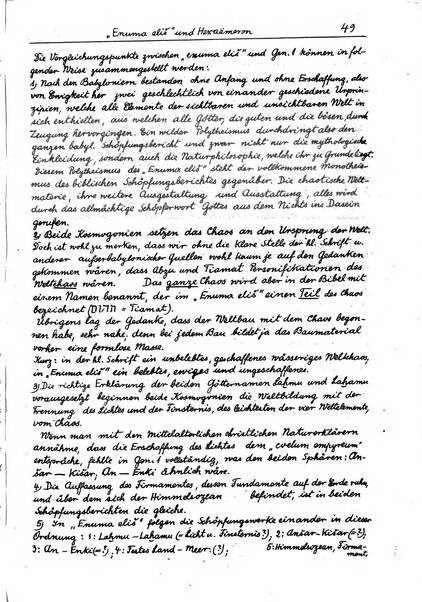 „Enuma eliš" und Hexaëmeron 49
Die Vergleichungspunkte zwischen „enuma eliš" und Gen. 1 können in fol-
gender Weise zusammengestellt werden:
1) Nach den Babyloniern bestanden ohne Anfang und ohne Erschaffung, also
von Ewigkeit her zwei geschlechtlich von einander geschiedene Urprin-
zipien, welche alle Elemente der sichtbaren und unsichtbaren Welt in
sich enthielten, aus welchen alle Götter, die guten und die bösen, durch
Zeugung hervorgingen. Ein wilder Polytheismus durchdringt also den
ganzen babyl. Schöpfungsbericht und zwar nicht nur die mythologische
Einkleidung, sondern auch die Naturphilosophie, welche ihr zu Grunde liegt.
Diesem Polytheismus des „Enuma eliš" steht der vollkommene Monotheis-
mus des biblischen Schöpfungsberichts gegenüber. Die chaotische Welt-
materie, ihre weitere Ausgestaltung und Ausstattung, alles wird
durch das allmächtige Schöpferwort Gottes aus dem Nichts ins Dasein
gerufen.
2) Beide Kosmogonien setzen das Chaos an den Ursprung der Welt.
Doch ist wohl zu merken, dass wir ohne die klare Stelle der hl. Schrift u.
anderer außerbabylonischer Quellen wohl kaum je auf den Gedanken
gekommen wären, dass Abzu und Tiamat Personifikationen des
Weltchaos wären. Das ganze Chaos wird aber in der Bibel mit
einem Namen benannt, der im „Enuma eliš" einen Teil des Chaos
bezeichnet (תהום = Tiamat).
Übrigens lag der Gedanke, dass der Weltbau mit dem Chaos begon-
nen habe, sehr nahe, denn bei jedem Bau bildet ja das Baumaterial
vorher eine formlose Masse.
Kurz: in der hl. Schrift ein unbelebtes, geschaffenes wässeriges Weltchaos,
in „Enuma eliš" ein belebtes, ewiges und ungeschaffenes.
3) Die richtige Erklärung der beiden Götternamen Laḫmu und Laḫamu
vorausgesetzt beginnen beide Kosmogonien die Weltbildung mit der
Trennung des Lichtes und der Finsternis, des leichtesten der vier Weltelemente,
vom Chaos.
Wenn man mit den mittelalterlichen christlichen Naturerklärern
annähme, dass die Erschaffung des Lichtes dem „coelum empyreum"
entspräche, fehlte in Gen. 1 vollständig, was den beiden Sphären: An-
šar — Kišar, An — Enki ähnlich wäre.
4) Die Auffassung des Firmamentes, dessen Fundamente auf der Erde ruhn,
und über dem sich der Himmelsozean befindet, ist in beiden
Schöpfungsberichten die gleiche.
5) In „Enuma eliš" folgen die Schöpfungswerke einander in dieser
Ordnung: 1: Laḫmu - Laḫamu (= Licht u. Finsternis?), 2: Anšar-Kišar (=?)
3: An - Enki (=?), 4: Festes Land - Meer: (?); 5: Himmelsozean, Firma-
ment,